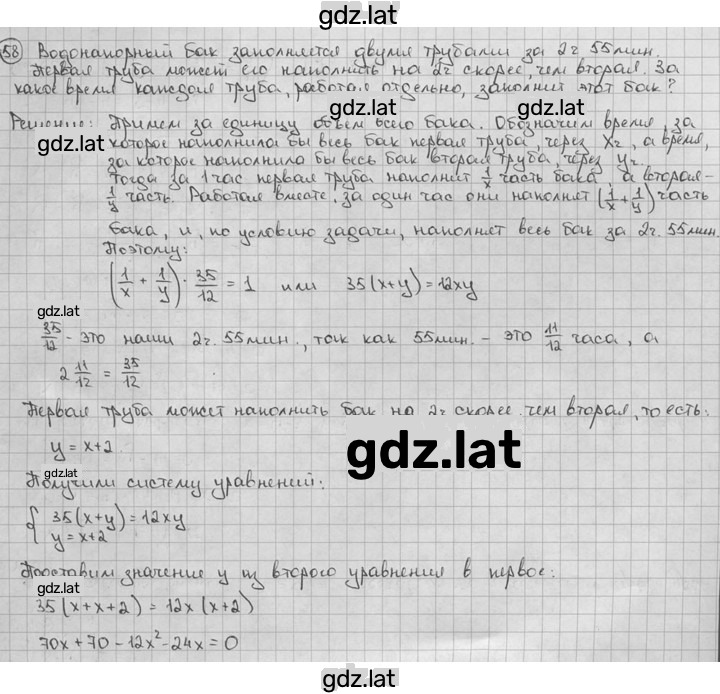 gdz.lat
58 Водонапорный бак заполняется двумя трубами за 2ч 55мин.
Первая труба может его наполнить на 2ч скорее, чем вторая. За
какое время каждая труба, работая отдельно, заполнит этот бак?
gdz.lat
gdz.lat
Решение: Примем за единицу объём всего бака. Обозначим время, за
gdz.lat
которое наполнила бы весь бак первая труба, через xч, а время,
за которое наполнила бы весь бак вторая труба, через yч.
gdz.lat
Тогда за 1 час первая труба наполнит 1/x часть бака, а вторая-
1/y часть. Работая вместе, за один час они наполнят (1/x + 1/y) часть
бака, и, по условию задачи, наполнят весь бак за 2ч. 55мин.
Поэтому:
(1/x + 1/y) · 35/12 = 1 или 35(x+y)=12xy
gdz.lat
gdz.lat
35/12 - это наши 2ч. 55мин., так как 55мин. - это 11/12 часа, а
2 11/12 = 35/12
gdz.lat
gdz.lat
Первая труба может наполнить бак на 2ч скорее, чем вторая, то есть:
y = x+2
gdz.lat
gdz.lat
Получили систему уравнений:
{ 35(x+y)=12xy
y=x+2
gdz.lat
gdz.lat
Подставим значение y из второго уравнения в первое:
gdz.lat
35(x+x+2)=12x(x+2)
gdz.lat
gdz.lat
70x+70-12x²-24x=0
gdz.lat